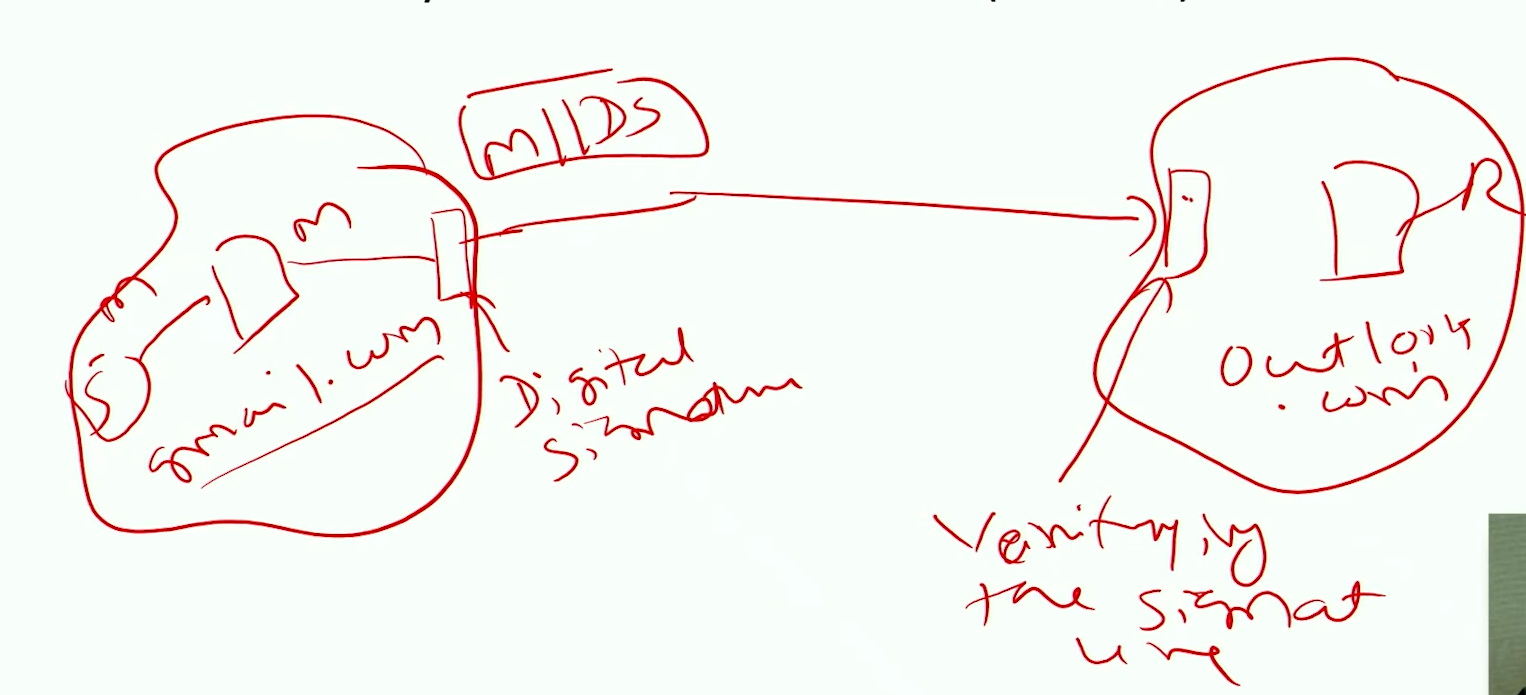 M||DS
M
m
S
gmail.com
Digital
signature
R
Outlook
.com
Verifying
the signat
ure